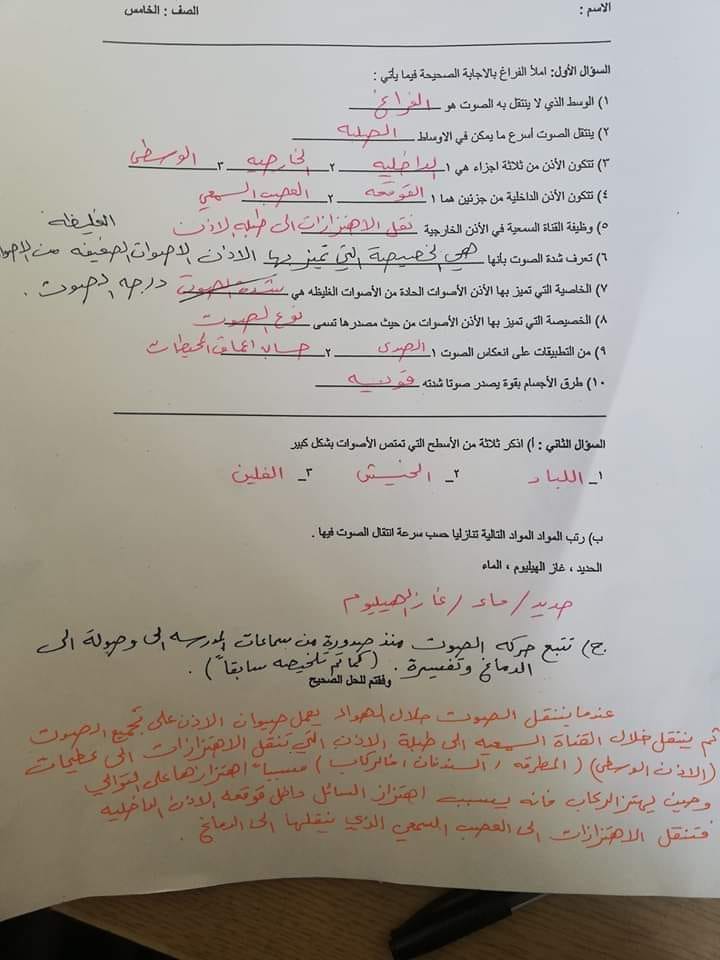 الاسم : الصف : الخامس
السؤال الأول: املأ الفراغ بالاجابة الصحيحة فيما يأتي :
١) الوسط الذي لا ينتقل به الصوت هو الفراغ
٢) ينتقل الصوت أسرع ما يمكن في الاوساط الصلبه
٣) تتكون الأذن من ثلاثة اجزاء هي ١ الداخليه ٢ الخارجيه ٣ الوسطى
٤) تتكون الأذن الداخلية من جزئين هما ١ القوقعه ٢ العصب السمعي
٥) وظيفة القناة السمعية في الأذن الخارجية نقل الاهتزازات الى طبلة الاذن
٦) تعرف شدة الصوت بأنها هي الخصيصة التي تميز بها الاذن الاصوات الضعيفه من الاصوات الغليظه
٧) الخاصية التي تميز بها الأذن الأصوات الحادة من الأصوات الغليظه هي شدة الصوت درجه الصوت .
٨) الخصيصة التي تميز بها الأذن الأصوات من حيث مصدرها تسمى نوع الصوت
٩) من التطبيقات على انعكاس الصوت ١ الصدى ٢ حساب اعماق المحيطات
١٠) طرق الأجسام بقوة يصدر صوتا شدته قويه
السؤال الثاني : أ) اذكر ثلاثة من الأسطح التي تمتص الأصوات بشكل كبير
١_ اللباد ٢_ الخيش ٣_ الفلين
ب) رتب المواد المواد التالية تنازليا حسب سرعة انتقال الصوت فيها .
الحديد ، غاز الهيليوم ، الماء
حديد / ماء / غاز الهيليوم
ج) تتبع حركه الصوت منذ صدورة من سماعات المدرسه الى وصولة الى
الدماغ وتفسيرة . ( كما تم تلخيصه سابقاً ) .
وفقتم للحل الصحيح
عندما ينتقل الصوت خلال الهواء يعمل صيوان الاذن على تجميع الصوت
ثم ينتقل خلال القناة السمعيه الى طبلة الاذن التي تنقل الاهتزازات الى عظيمات
(الاذن الوسطى) ( المطرقه / السندان / الركاب ) مسبباً اهتزازها على التوالي
وحين يهتز الركاب فانه يسبب اهتزاز السائل داخل قوقعه الاذن الداخليه
فتنقل الاهتزازات الى العصب السمعي الذي ينقلها الى الدماغ .